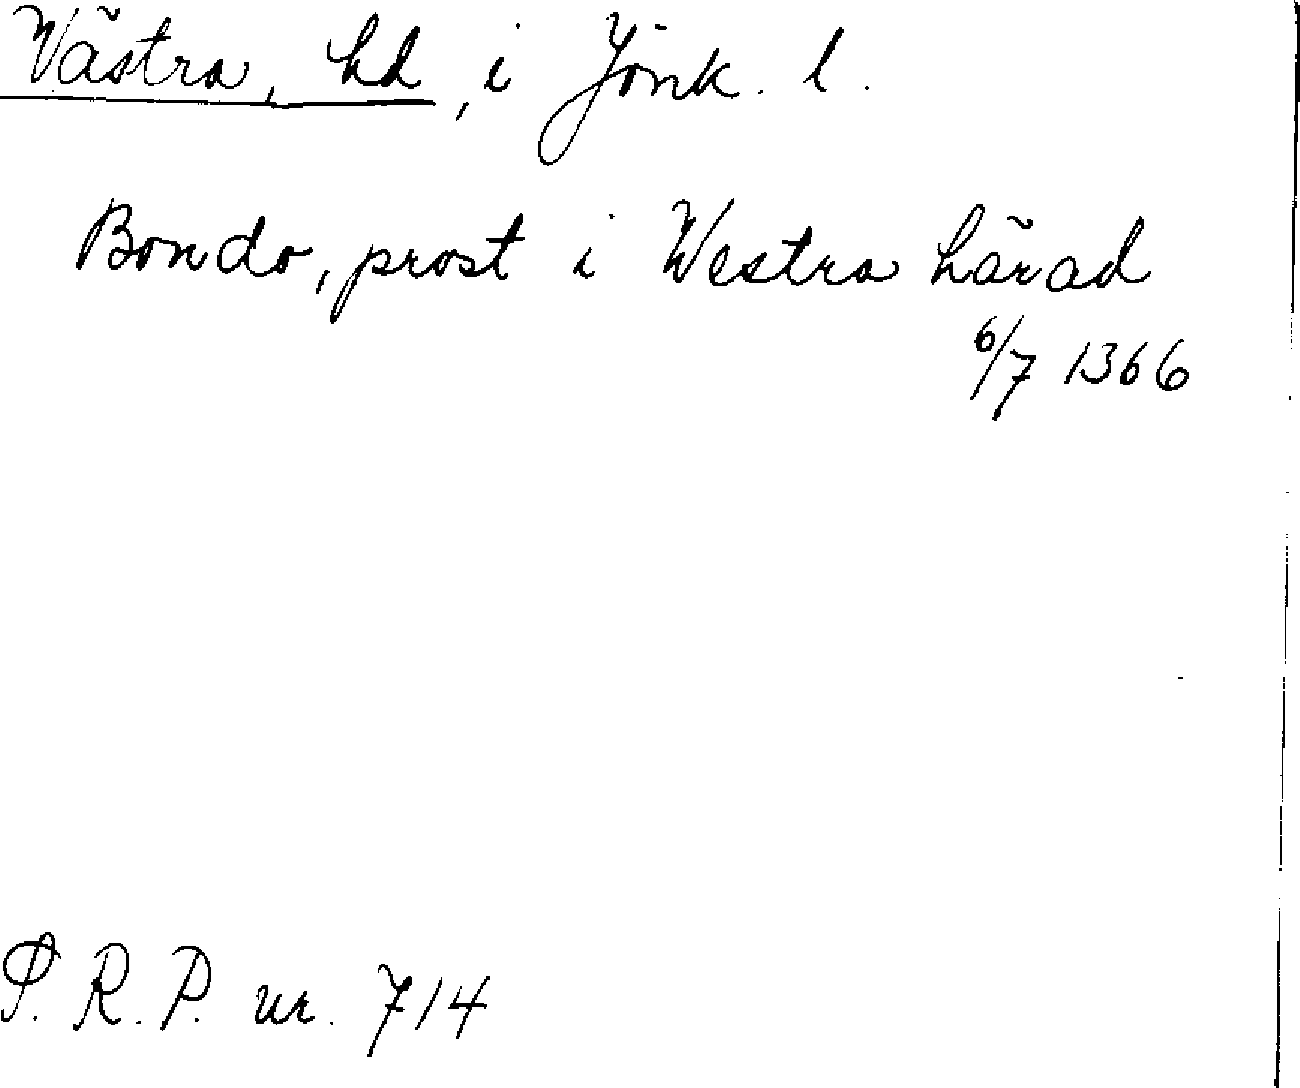 Västra, hd, i Jönk. l.
Bondo, prost i Westra härad
6/7 1366
P.R.P. nr. 714